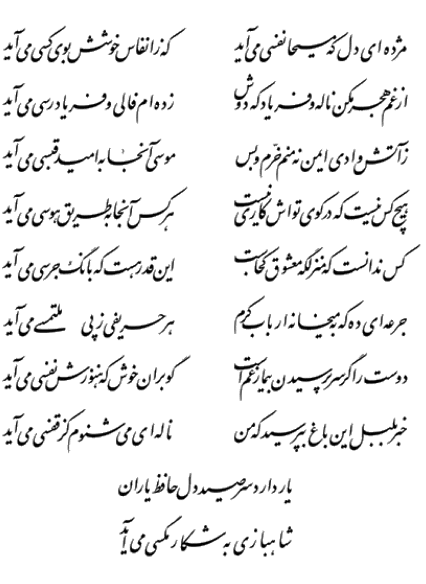 مژده ای دل که مسیحا نفسی می‌آید که ز انفاس خوشش بوی کسی می‌آید
از غم هجر مکن ناله و فریاد که دوش زده‌ام فالی و فریادرسی می‌آید
ز آتش وادی ایمن نه منم خرم و بس موسی آنجا به امید قبسی می‌آید
هیچ کس نیست که در کوی تواش کاری نیست هر کس آنجا به طریق هوسی می‌آید
کس ندانست که منزلگه معشوق کجاست این قدر هست که بانگ جرسی می‌آید
جرعه‌ای ده که به میخانه ارباب کرم هر حریفی ز پی ملتمسی می‌آید
دوست را گر سر پرسیدن بیمار غم است گو بران خوش که هنوزش نفسی می‌آید
خبر بلبل این باغ بپرسید که من ناله‌ای می‌شنوم کز قفسی می‌آید
یار دارد سر صید دل حافظ یاران
شاهبازی به شکار مگسی می‌آید